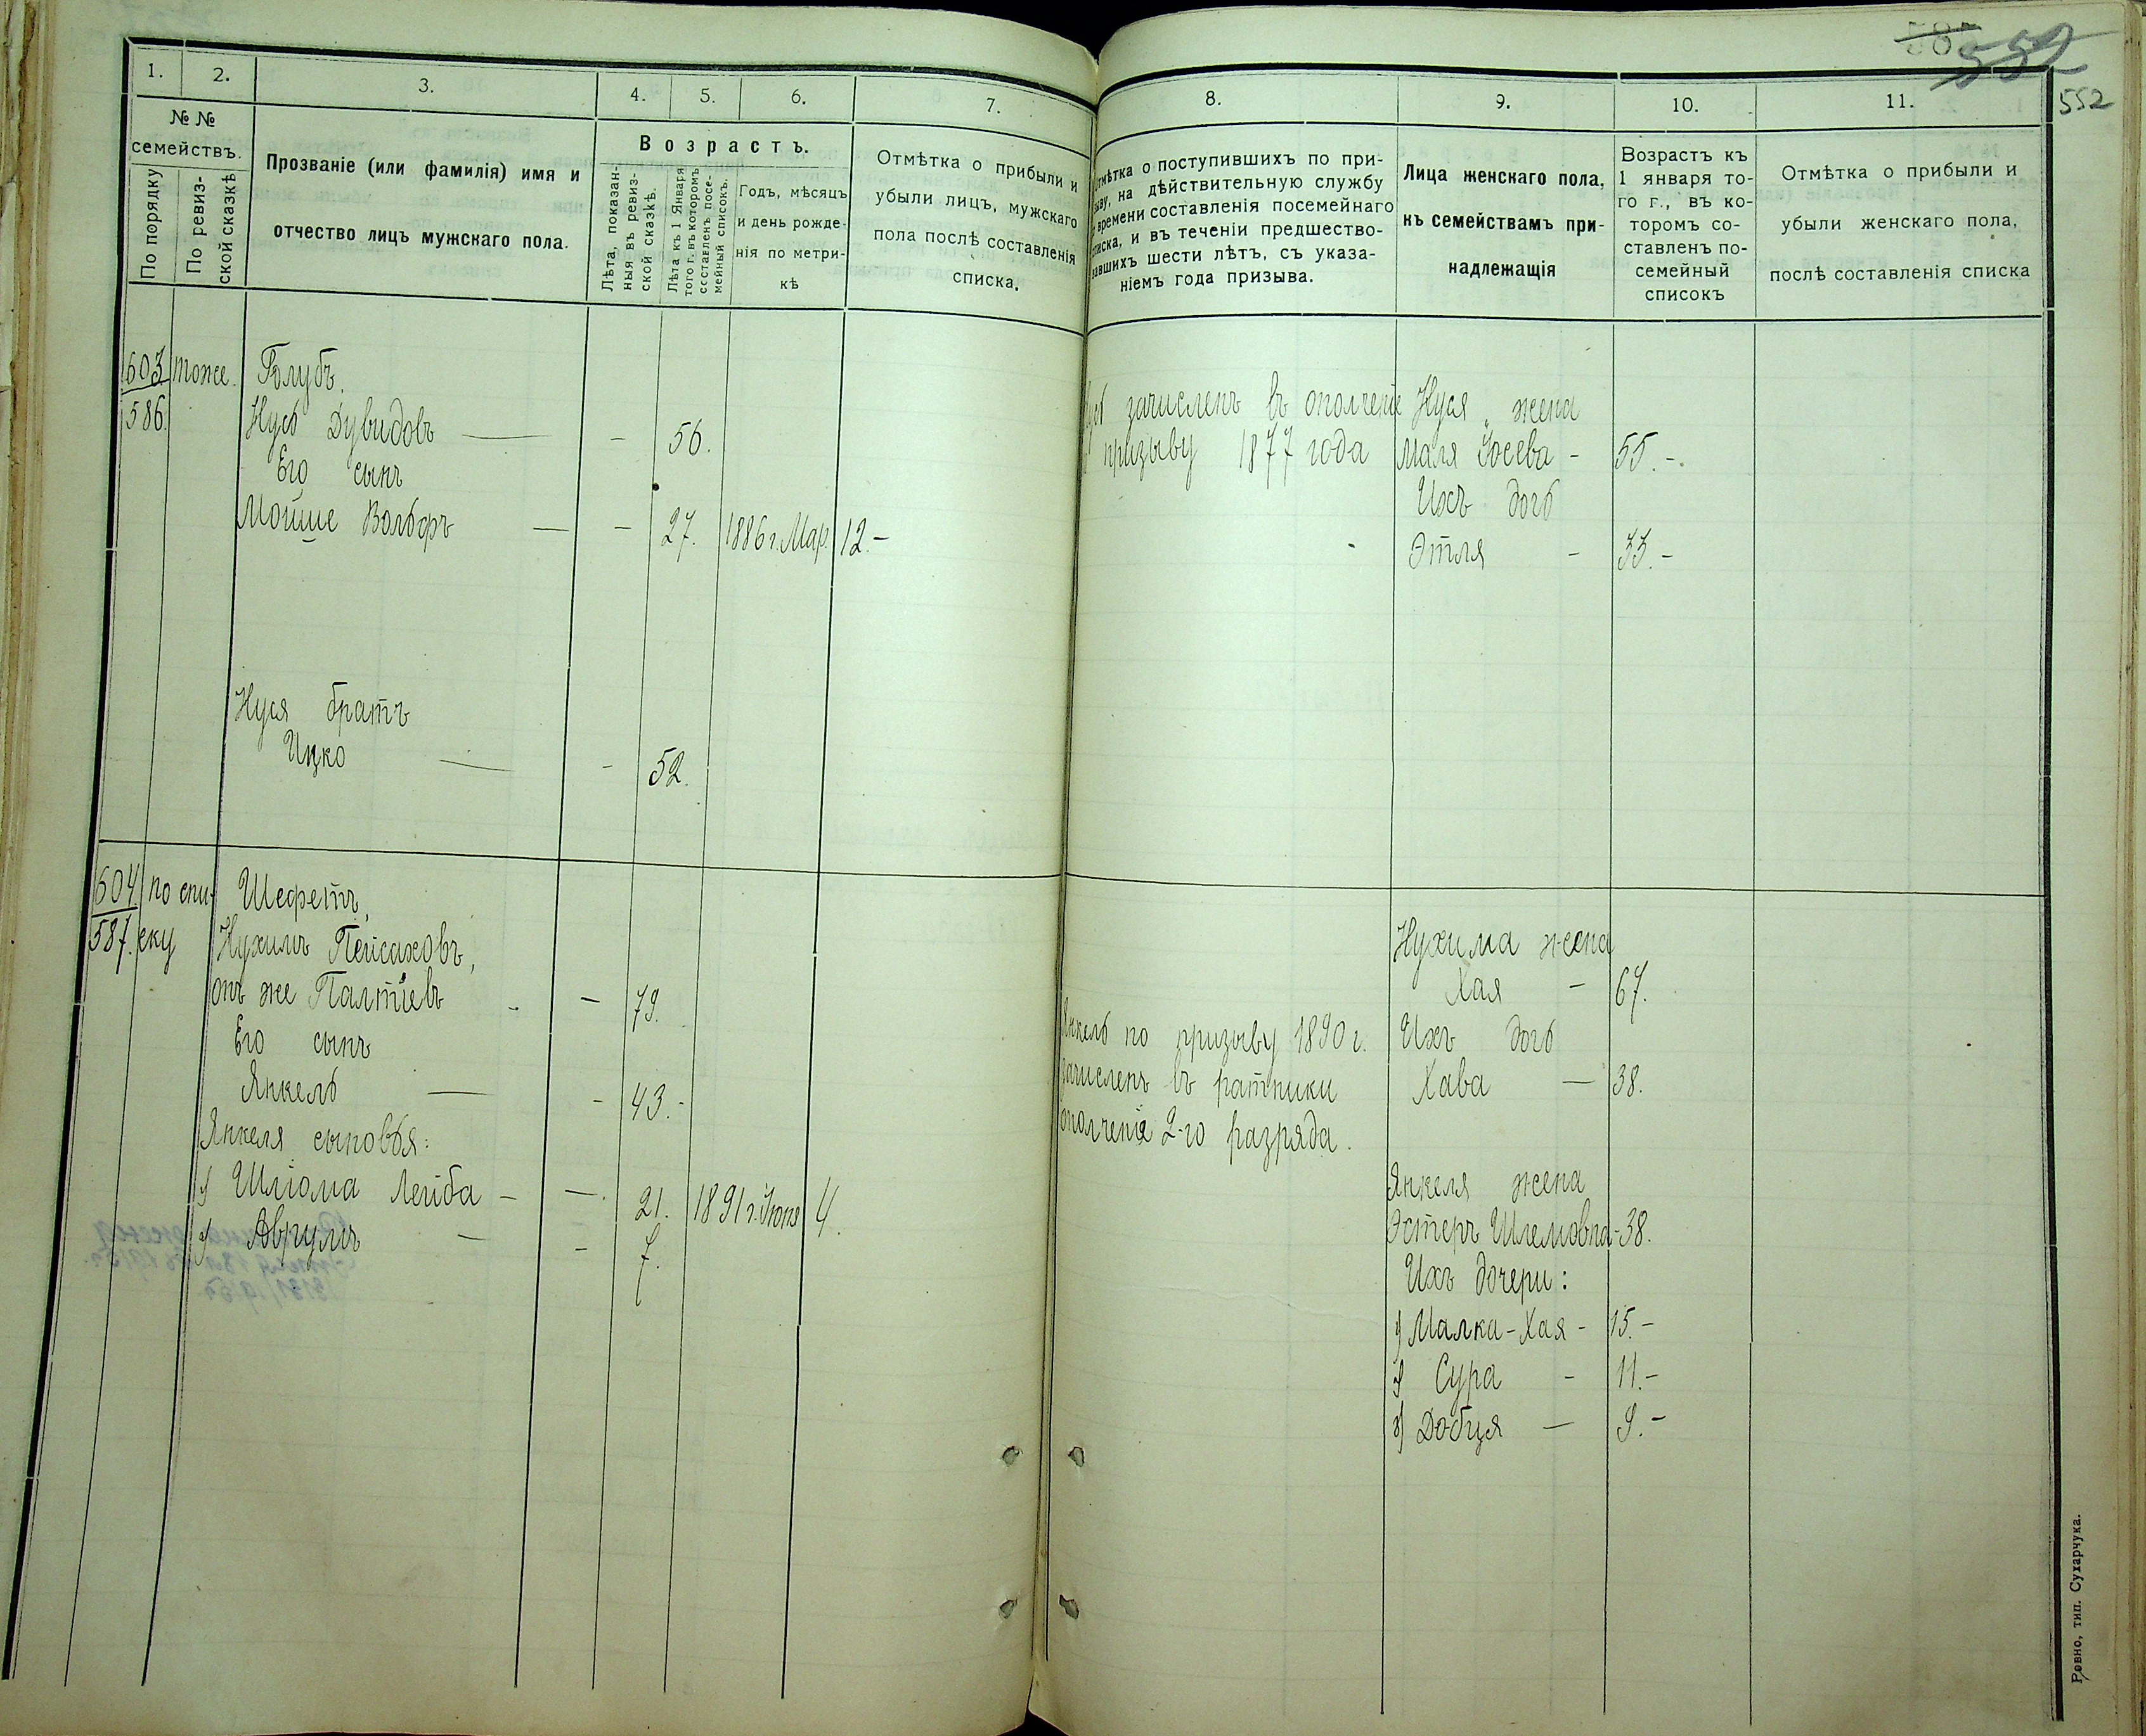 585
552
552
1.
2.
3.
4.
5.
6.
7.
№ №
семействъ.
По порядку
По ревиз-
ской сказкѣ
Прозваніе (или фамилія) имя и
отчество лицъ мужскаго пола.
Возрастъ.
Лѣта, показан-
ныя въ ревиз-
ской сказкѣ.
Лѣта къ 1 Января
того г. въ которомъ
составленъ посе-
мейный списокъ.
Годъ, мѣсяцъ
и день рожде-
нія по метри-
кѣ
Отмѣтка о прибыли и
убыли лицъ, мужскаго
пола послѣ составленія
списка.
603 тоже. Голубъ.
586. Нусь Дувидовъ — - 56.
Его сынъ
Мойше Вольфъ — - 27. 1886 г. Мар. 12.-
Нуся братъ
Ицко — - 52.
604 по спи- Шефетъ,
587. ску Нухимъ Пейсаховъ,
онъ же Палтіевъ - - 79.
Его сынъ
Янкель — - 43.-
Янкеля сыновья:
1) Шліома Лейба - -. 21. 1891 г. Іюня 4.
2) Аврумъ - - 7.
8.
9.
10.
11.
Отмѣтка о поступившихъ по при-
зыву, на дѣйствительную службу
времени составленія посемейнаго
списка, и въ теченіи предшество-
вавшихъ шести лѣтъ, съ указа-
ніемъ года призыва.
Лица женскаго пола,
къ семействамъ при-
надлежащія
Возрастъ къ
1 января то-
го г., въ ко-
торомъ со-
ставленъ по-
семейный
списокъ
Отмѣтка о прибыли и
убыли женскаго пола,
послѣ составленія списка
Нусь зачисленъ въ ополченіе Нуся жена
призыву 1877 года Маля Іосева - 55.-.
Ихъ дочь
Этля - 33.-
Нухима жена
Хая - 67.
Янкель по призыву 1890 г. Ихъ дочь
зачисленъ въ ратники Хава — 38.
ополченія 2-го разряда.
Янкеля жена
Эстеръ Шлемовна - 38.
Ихъ дочери:
1) Малка-Хая - 15.-
2) Сура - 11.-
3) Добця — 9.-
Ровно, тип. Сухарчука.